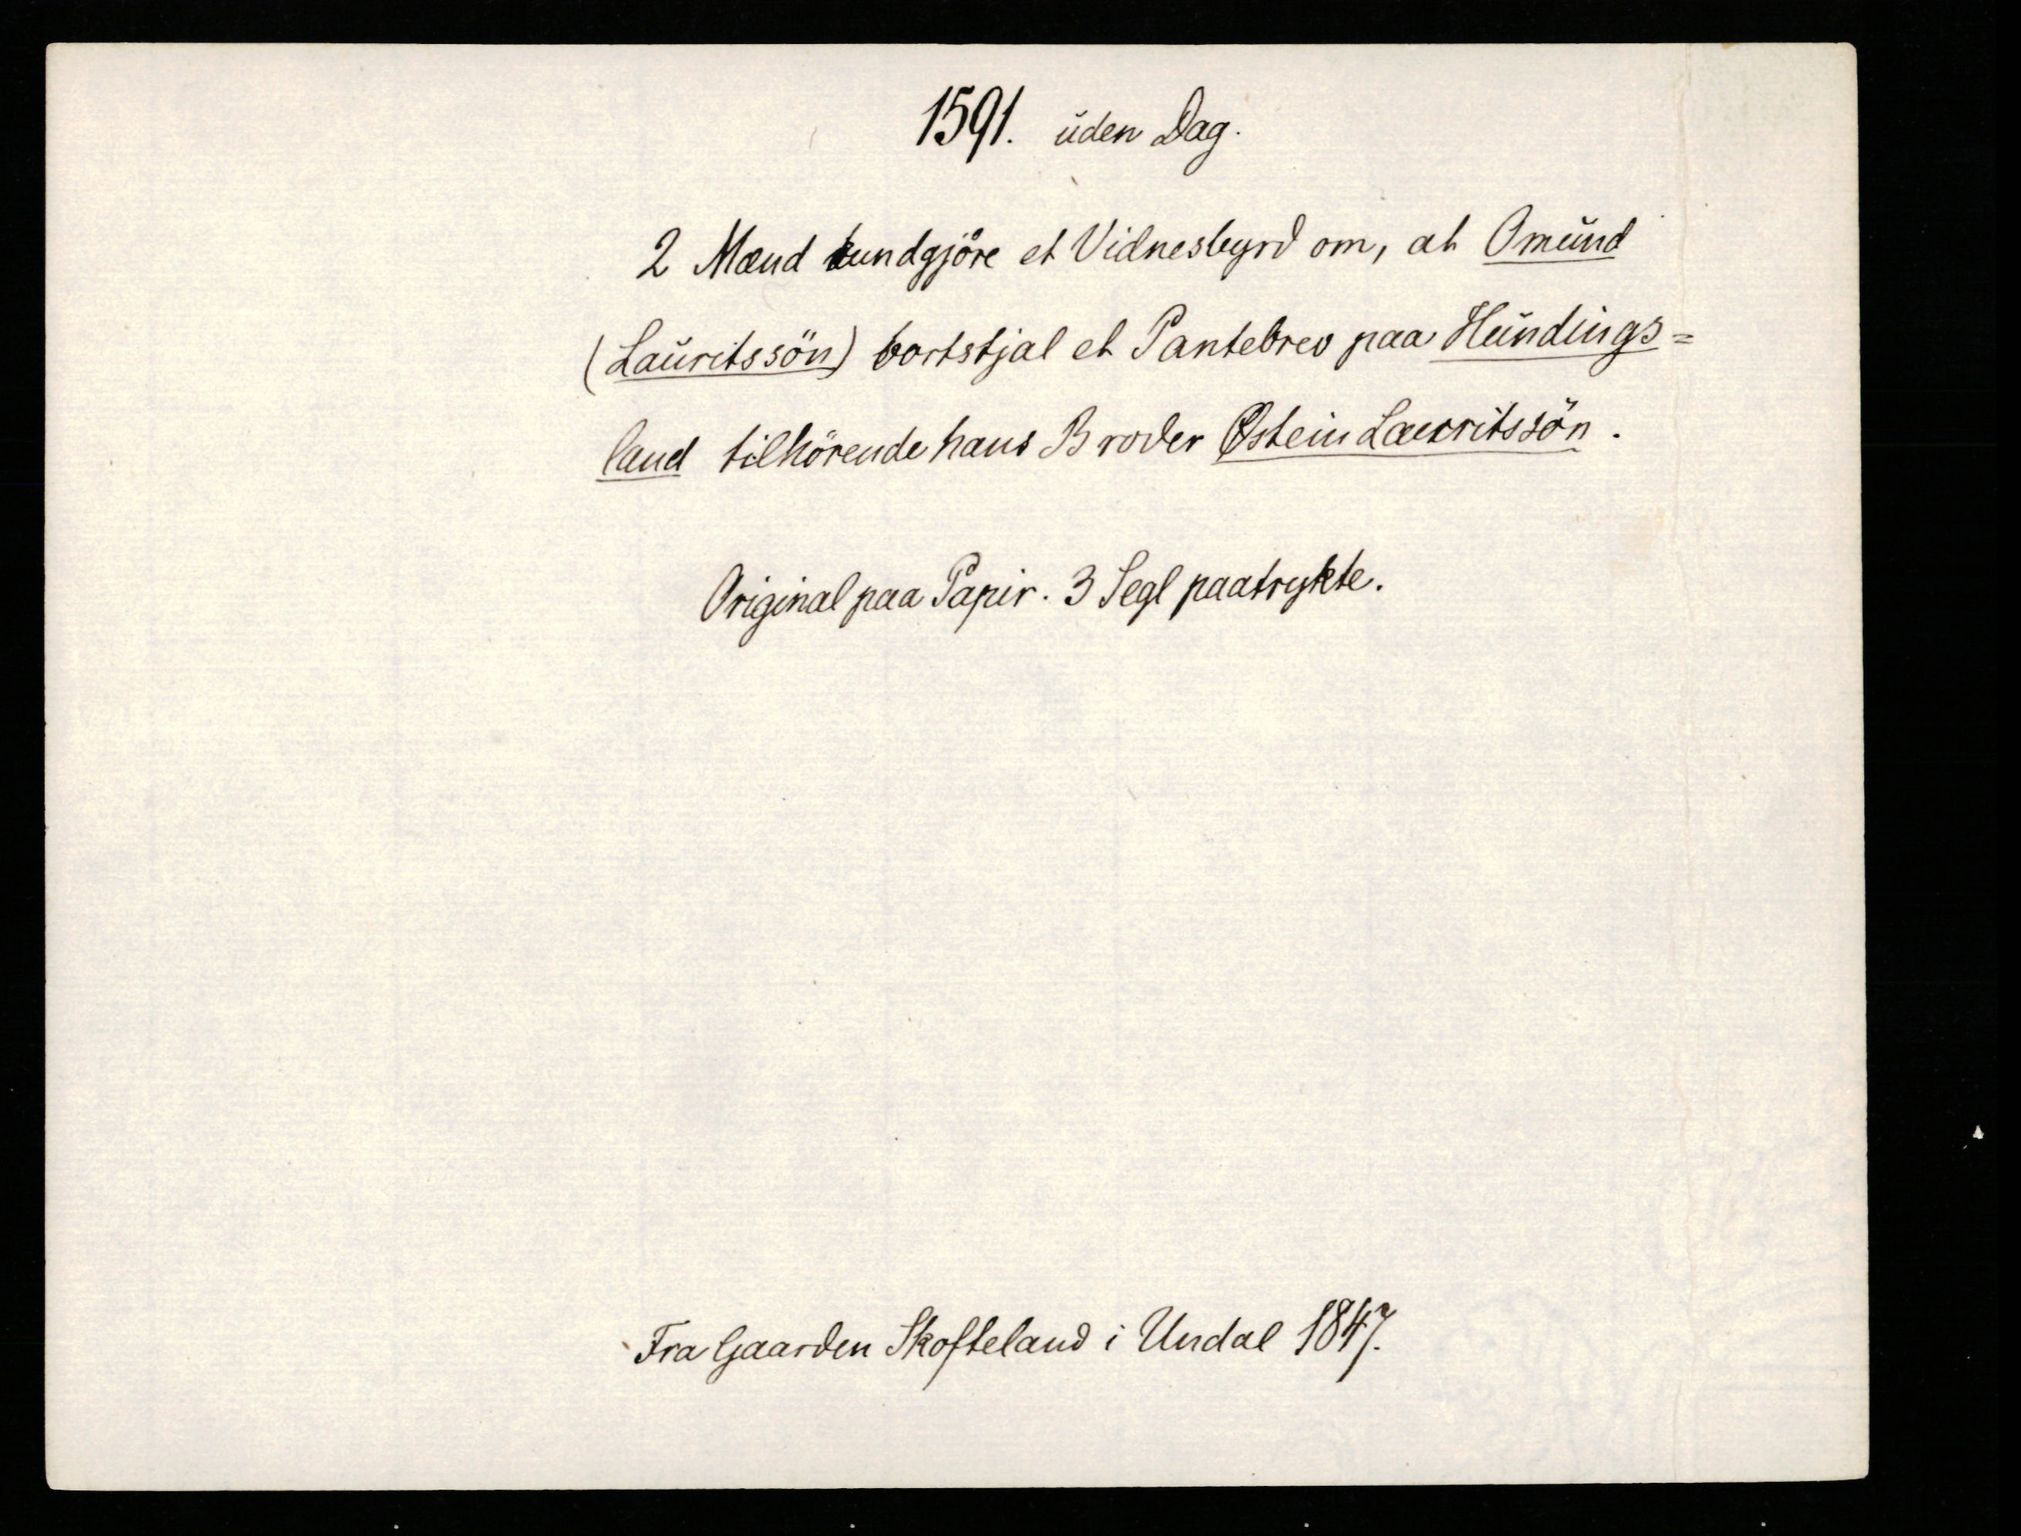 1591. uden Dag.
2 Mænd kundgjöre et Vidnesbyrd om, at Omund
(Lauritssön) bortstjal et Pantebrev paa Hundings=
land tilhörende hans Broder Østein Lauritssön.
Original paa Papir. 3 Segl paatrykte.
Fra Gaarden Skofteland i Undal 1847.